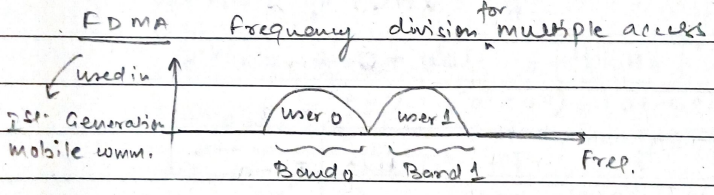 FDMA Frequency division for multiple access
used in
Ist. Generation
mobile comm.
user 0 user 1
Band 0 Band 1
Freq.